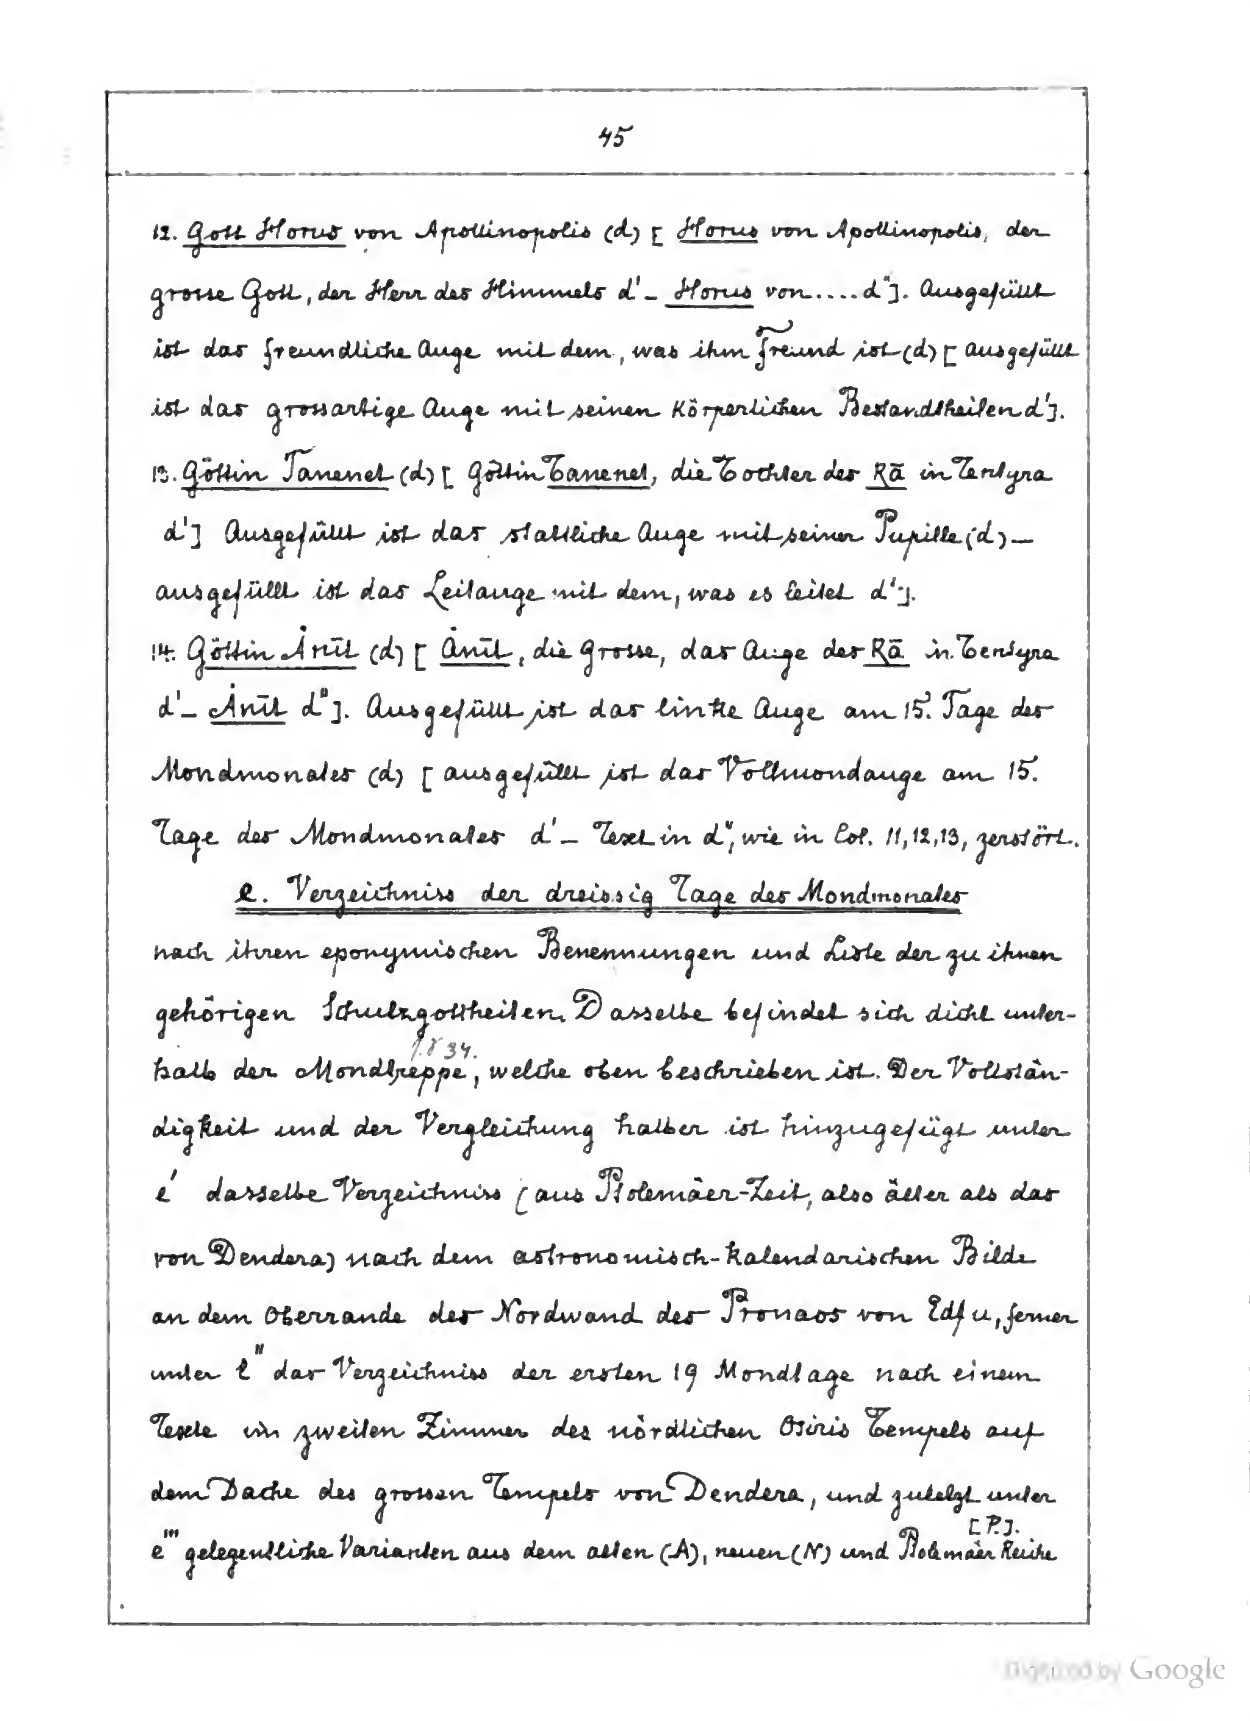 45
12. Gott Horus von Apollinopolis (d) [ Horus von Apollinopolis, der
grosse Gott, der Herr des Himmels d' – Horus von .... d"]. Ausgefüllt
ist das freundliche Auge mit dem, was ihm freund ist (d) [ ausgefüllt
ist das grossartige Auge mit seinen Körperlichen Bestandtheilen d'].
13. Göttin Tanenet (d) [ Göttin Tanenet, die Tochter des Rā in Tentyra
d'] Ausgefüllt ist das stattliche Auge mit seiner Pupille (d) –
ausgefüllt ist das Leitauge mit dem, was es leitet d'].
14. Göttin Ȧnīt (d) [ Ȧnīt, die Grosse, das Auge des Rā in Tentyra
d' – Ȧnīt d"]. Ausgefüllt ist das linke Auge am 15. Tage des
Mondmonates (d) [ ausgefüllt ist das Vollmondauge am 15.
Tage des Mondmonates d' – Text in d", wie in Col. 11, 12, 13, zerstört.
e. Verzeichniss der dreissig Tage des Mondmonates
nach ihren eponymischen Benennungen und Liste der zu ihnen
gehörigen Schutzgottheiten. Dasselbe befindet sich dicht unter-
halb der Mondtreppe, welche oben beschrieben ist. Der Vollstän-
digkeit und der Vergleichung halber ist hinzugefügt unter
e' dasselbe Verzeichniss (aus Ptolemäer-Zeit, also älter als das
von Dendera) nach dem astronomisch-kalendarischen Bilde
an dem Oberrande der Nordwand des Pronaos von Edfu, ferner
unter e" das Verzeichniss der ersten 19 Mondtage nach einem
Texte im zweiten Zimmer des nördlichen Osiris Tempels auf
dem Dache des grossen Tempels von Dendera, und zuletzt unter
[P.].
e''' gelegentliche Varianten aus dem alten (A), neuen (N) und Ptolemäer Reiche
Digitized by Google